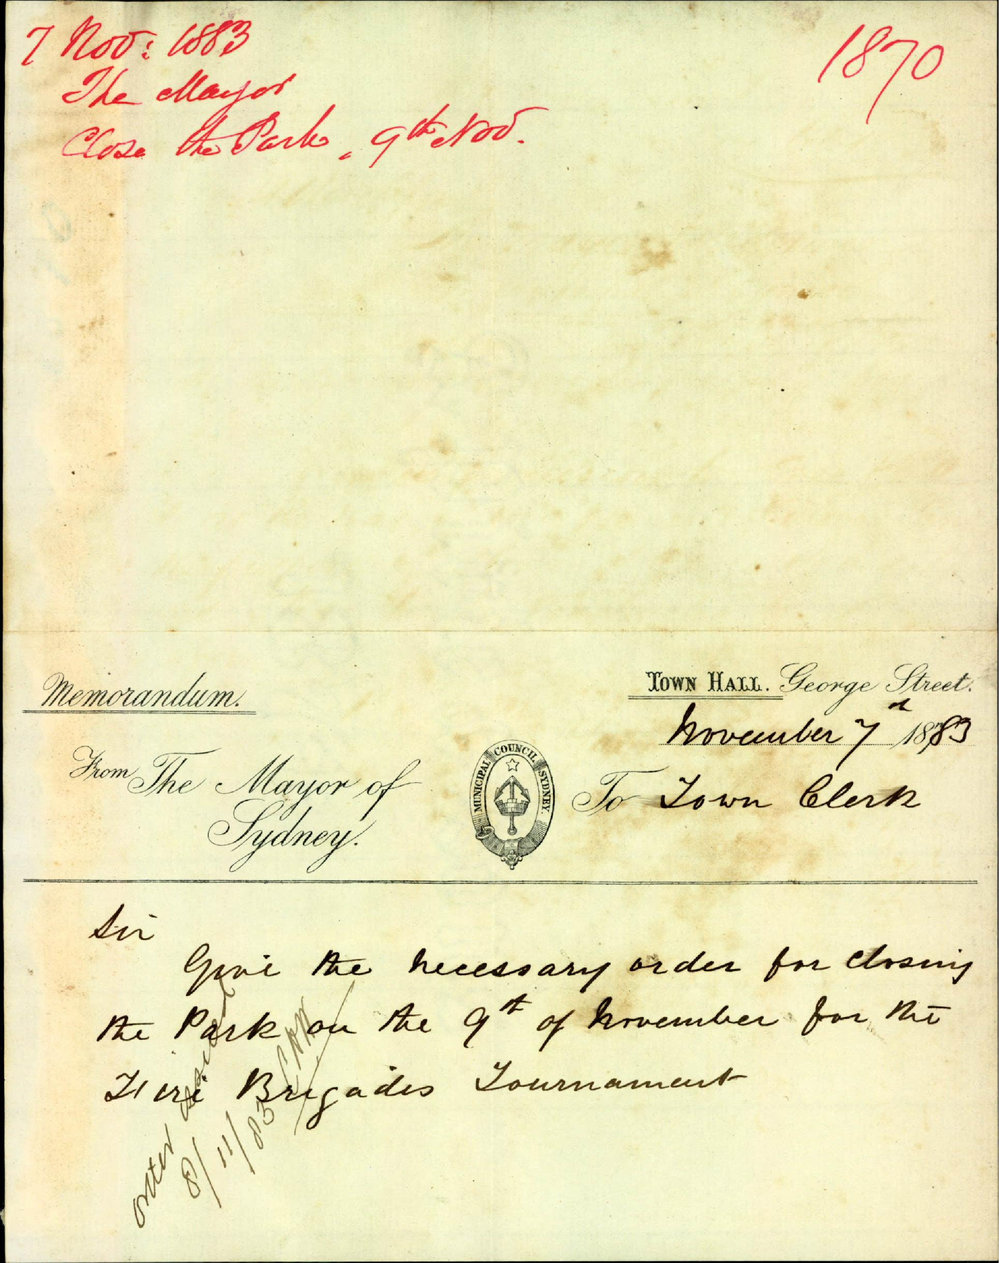 7 Nov: 1883
1870
The Mayor
Close the Park, 9th Nov.
Memorandum.
Town Hall. George Street.
November 7th 1883
From The Mayor of
Sydney.
MUNICIPAL COUNCIL SYDNEY.
To Town Clerk
Sir
Give the necessary order for closing
the Park on the 9th of November for the
Fire Brigades Tournament
order issued
8/11/83